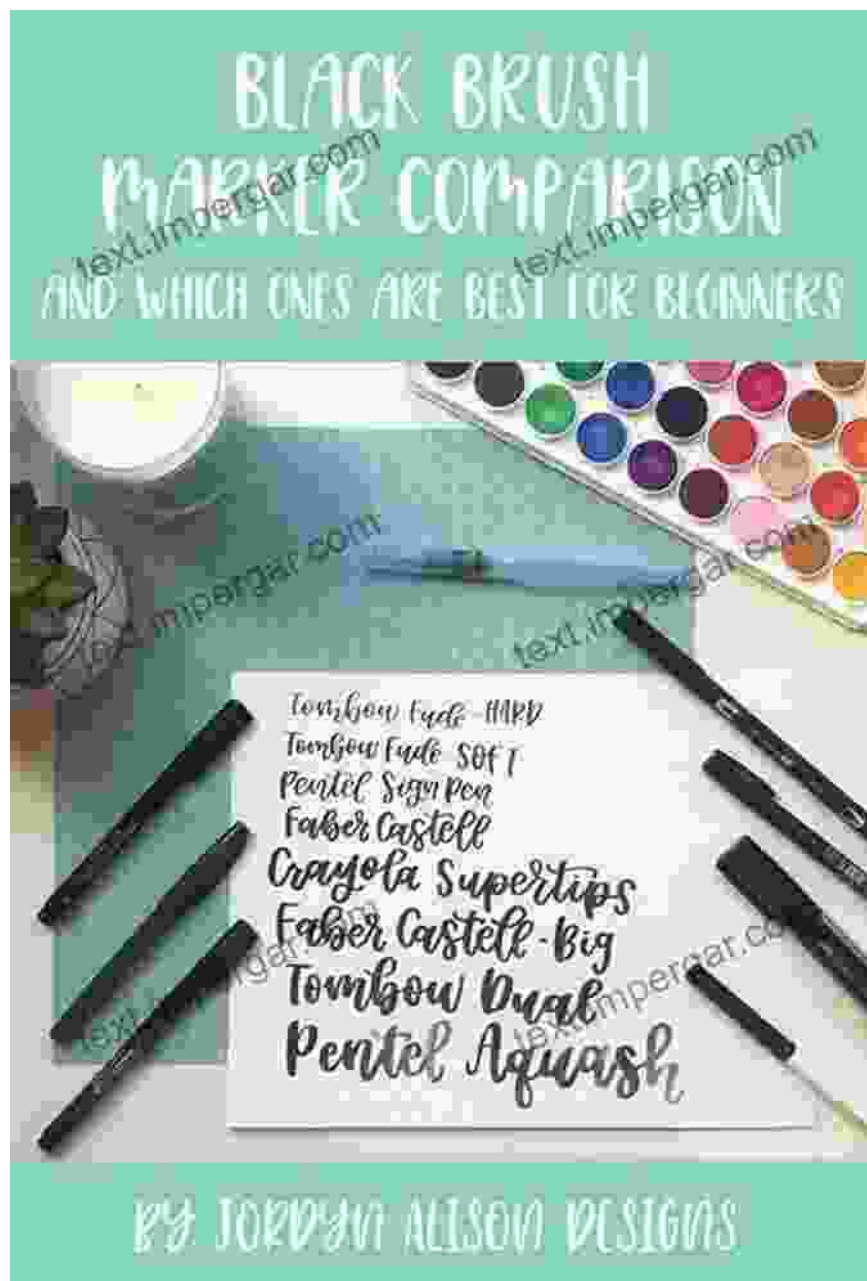 BLACK BRUSH
MARKER COMPARISON
AND WHICH ONES ARE BEST FOR BEGINNERS
text.impergar.com
text.impergar.com
text.impergar.com
text.impergar.com
Tombow Fude-HARD
Tombow Fude SOFT
Pentel Sign Pen
Faber Castell
Crayola Supertips
Faber Castell-Big
Tombow Dual
Pentel Aquash
text.impergar.com
text.impergar.com
BY JORDYN ALISON DESIGNS